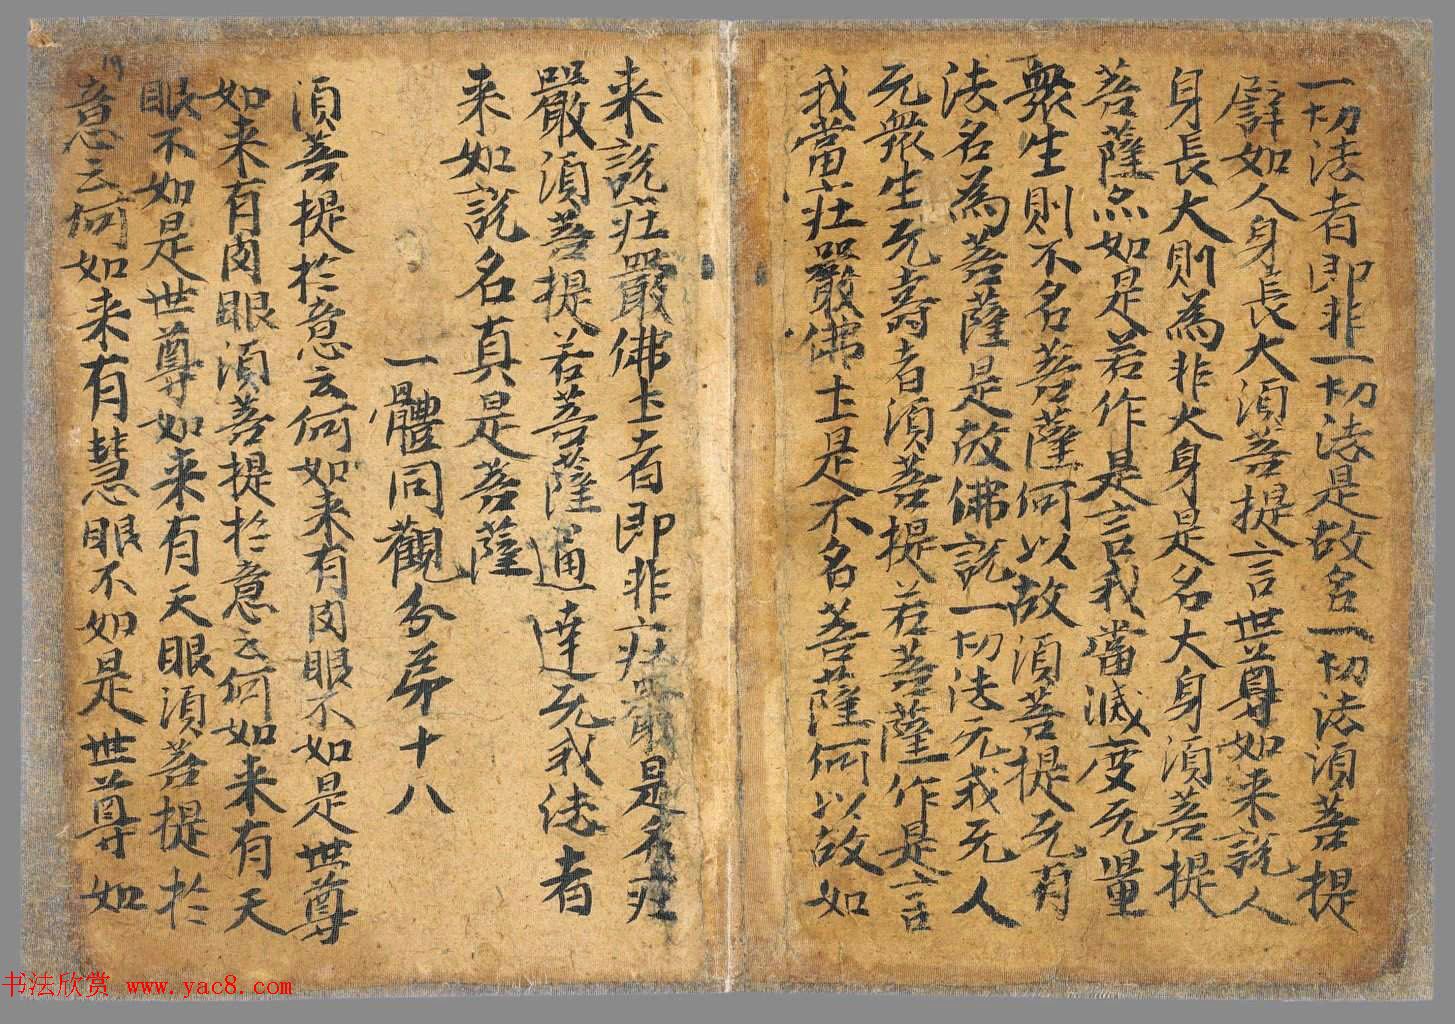 一切法者即非一切法是故名一切法須菩提
譬如人身長大須菩提言世尊如来說人
身長大則為非大身是名大身須菩提
菩薩亦如是若作是言我當滅度无量
衆生則不名菩薩何以故須菩提无有
法名為菩薩是故佛說一切法无我无人
无衆生无壽者須菩提若菩薩作是言
我當庄嚴佛土是不名菩薩何以故如
来說庄嚴佛土者即非庄嚴是名庄
嚴須菩提若菩薩通達无我法者
来如說名真是菩薩
一體同觀分苐十八
須菩提於意云何如来有肉眼不如是世尊
如来有肉眼須菩提於意云何如来有天
眼不如是世尊如来有天眼須菩提於
意云何如来有慧眼不如是世尊如
书法欣赏 www.yac8.com